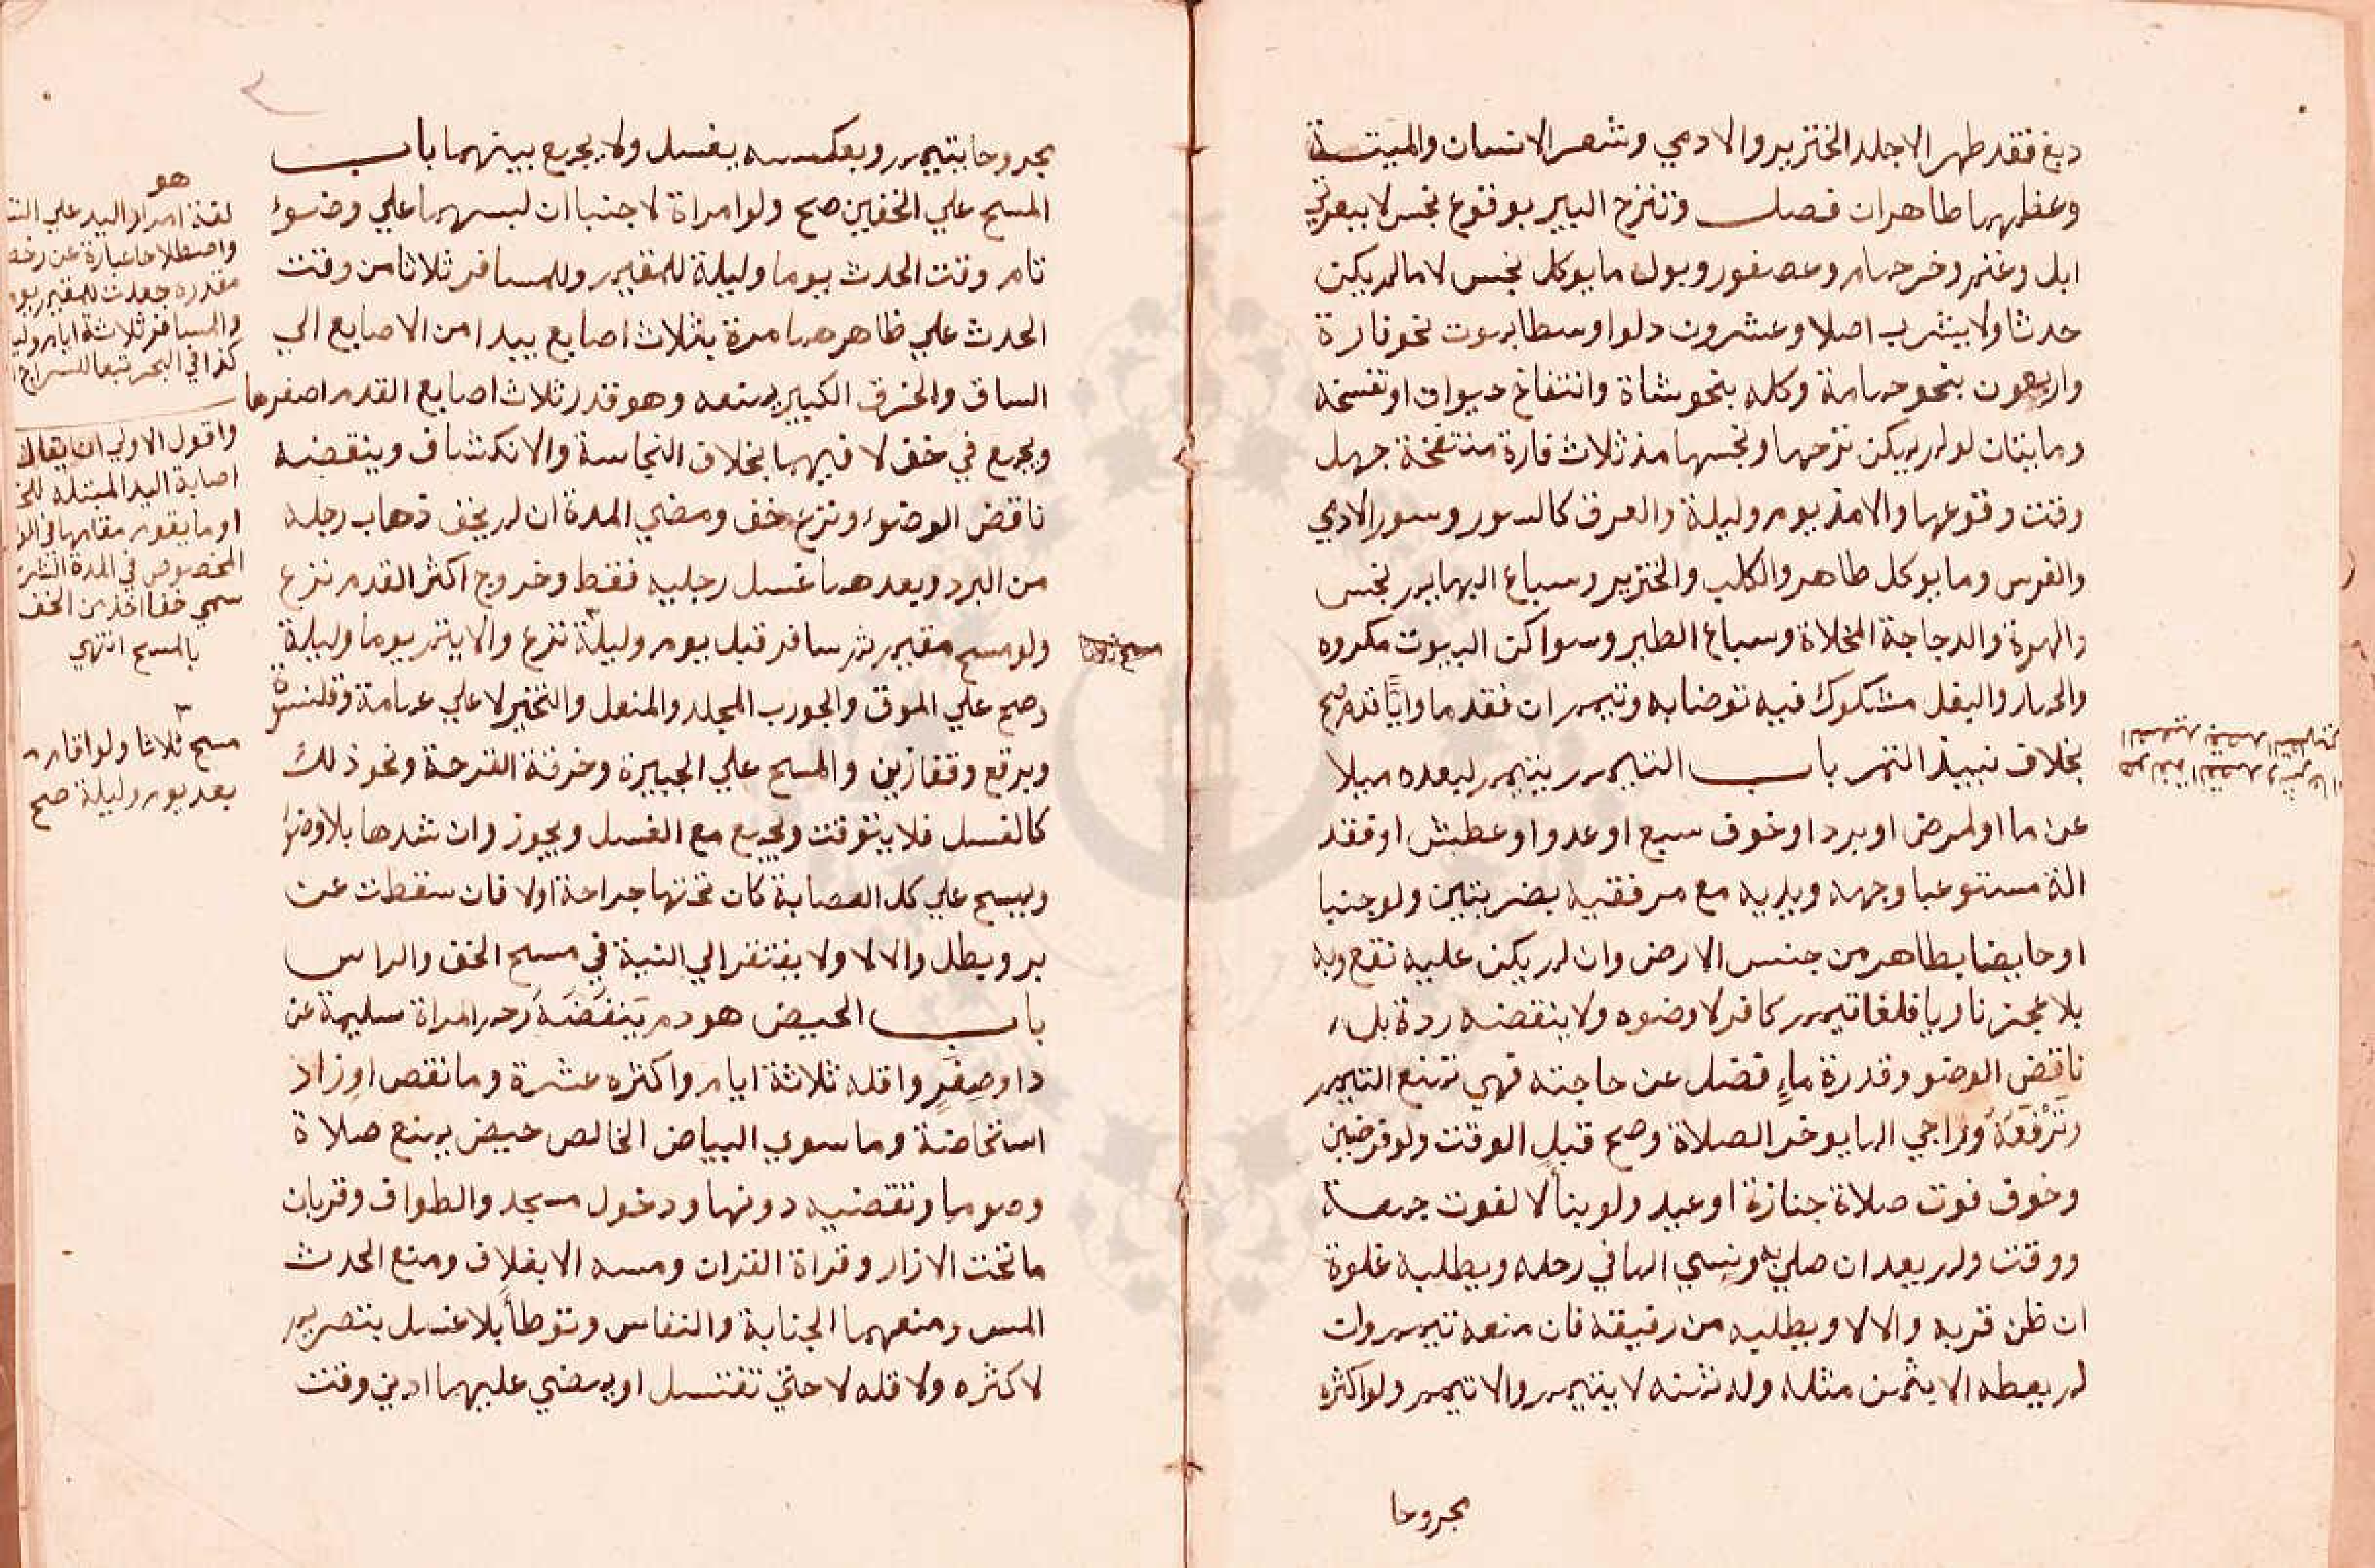 دبغ فقد طهر الا جلد الخنزير والادمي وشعر الانسان والميتة
وعظمهما طاهران فصل وتنزح البير بوقوع نجس لا ببعرتي
ابل وغنم وخرء حمام وعصفور وبول ما يوكل نجس لا ما لم يكن
حدثا ولا يشرب اصلا وعشرون دلوا وسطا بموت نحو فارة
واربعون بنحو حمامة وكله بنحو شاة وانتفاخ حيوان او تفسخه
ومايتان لو لم يكن نزحها ونجسها مذ ثلاث فارة منتفخة جهل
وقت وقوعها والا مذ يوم وليلة والعرق كالسور وسور الادمي
والفرس وما يوكل طاهر والكلب والخنزير وسباع البهايم نجس
والهرة والدجاجة المخلاة وسباع الطير وسواكن البيوت مكروه
والحمار والبغل مشكوك فيه توضا به وتيمم ان فقد ما وايًّا قدم صح
بخلاف نبيذ التمر باب التيمم يتيمم لبعده ميلا
عن ما او لمرض او برد او خوف سبع او عدو او عطش او فقد
الة مستوعبا وجهه ويديه مع مرفقيه بضربتين ولو جنبا
او حايضا بطاهر من جنس الارض وان لم يكن عليه نقع وبه
بلا عجز ناويا فلغا تيمم كافر لا وضوه ولا ينقضه ردة بل
ناقض الوضو وقدرة ماءٍ فضل عن حاجته فهي تمنع التيمم
وترفعه وراجي الما يوخر الصلاة وصح قبل الوقت ولو فرضين
وخوف فوت صلاة جنازة او عيد ولو بناً لا لفوت جمعة
ووقت ولم يعد ان صلي به ونسي الما في رحله ويطلبه غلوة
ان ظن قربه والا لا ويطلبه من رفيقه فان منعه تيمم وان
لم يعطه الا بثمن مثله وله ثمنه لا يتيمم والا تيمم ولو اكثره
مجروحا
مجروحا بتيمم وبعكسه يغسل ولا يجمع بينهما باب
المسح علي الخفين صح ولو امراة لا جنبا ان لبسهما علي وضوء
تام وقت الحدث يوما وليلة للمقيم وللمسافر ثلاثا من وقت
الحدث علي ظاهرهما مرة بثلاث اصابع يبدا من الاصابع الي
الساق والخرق الكبير يمنعه وهو قدر ثلاث اصابع القدم اصغرها
ويجمع في خف لا فيهما بخلاف النجاسة والانكشاف وينقضه
ناقض الوضوء ونزع خف ومضي المدة ان لم يخف ذهاب رجله
من البرد وبعدهما غسل رجليه فقط وخروج اكثر القدم نزع
ولو مسح مقيم ثم سافر قبل يوم وليلة نزع والا يتم يوما وليلة
وصح علي الموق والجورب المجلد والمنعل والثخين لا علي عمامة وقلنسوة
وبرقع وقفازين والمسح علي الجبيرة وخرقة القرحة ونحو ذلك
كالغسل فلا يتوقت ويجمع مع الغسل ويجوز وان شدها بلا وضوء
ويمسح علي كل العصابة كان تحتها جراحة اولا فان سقطت عن
برو يطل والا لا ولا يفتقر الي النية في مسح الخف والراس
باب الحيض هو دم ينفضه رحم امراة سليمة عن
دا وصغرٍ واقله ثلاثة ايام واكثره عشرة وما نقص او زاد
استحاضة وما سوي البياض الخالص حيض يمنع صلاة
وصوما وتقضيه دونها ودخول مسجد والطواف وقربان
ما تحت الازار وقراة القران ومسه الا بغلاف ومنع الحدث
المس ومنعهما الجنابة والنفاس وتوطأ بلا غسل بتصرم
لاكثره ولاقله لا حتي تغتسل او يمضي عليها ادني وقت
هو
لغة امرار اليد علي
واصطلاحا عبارة عن
مقدرة جعلت للمقيم
والمسافر ثلاثة ايام
كذا في البحر تبعا للسراج
واقول الاولي ان يقال
اصابة اليد المبتلة
او ما يقوم مقامها في
المخصوص في المدة
سمي خفا اخذ من الخف
بالمسح انتهي
مسح ثلاثا ولو اقام
بعد يوم وليلة صح